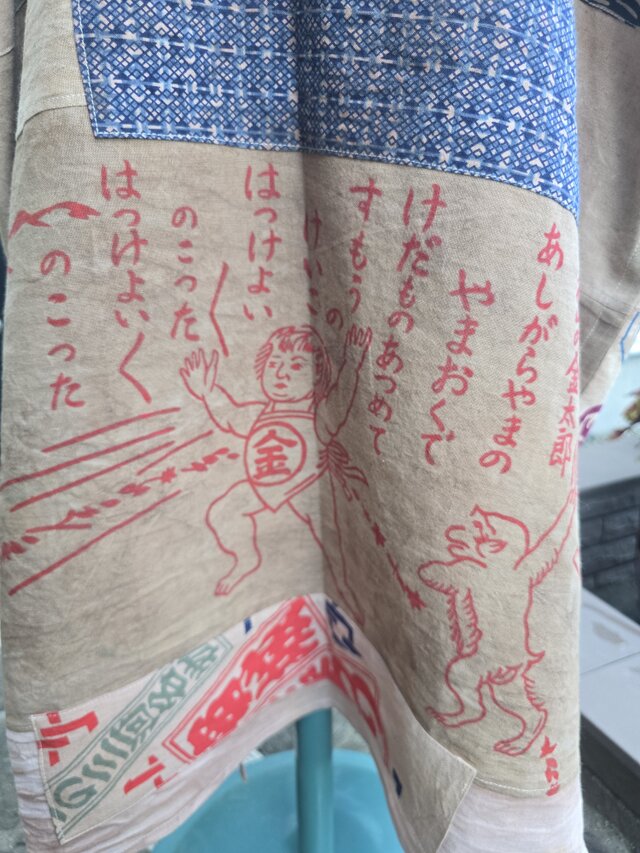 の金太郎
あしがらやまの
やまおくで
けだものあつめて
すもうの
けいこ
はっけよい〱
のこった
はっけよい〱
のこった
金